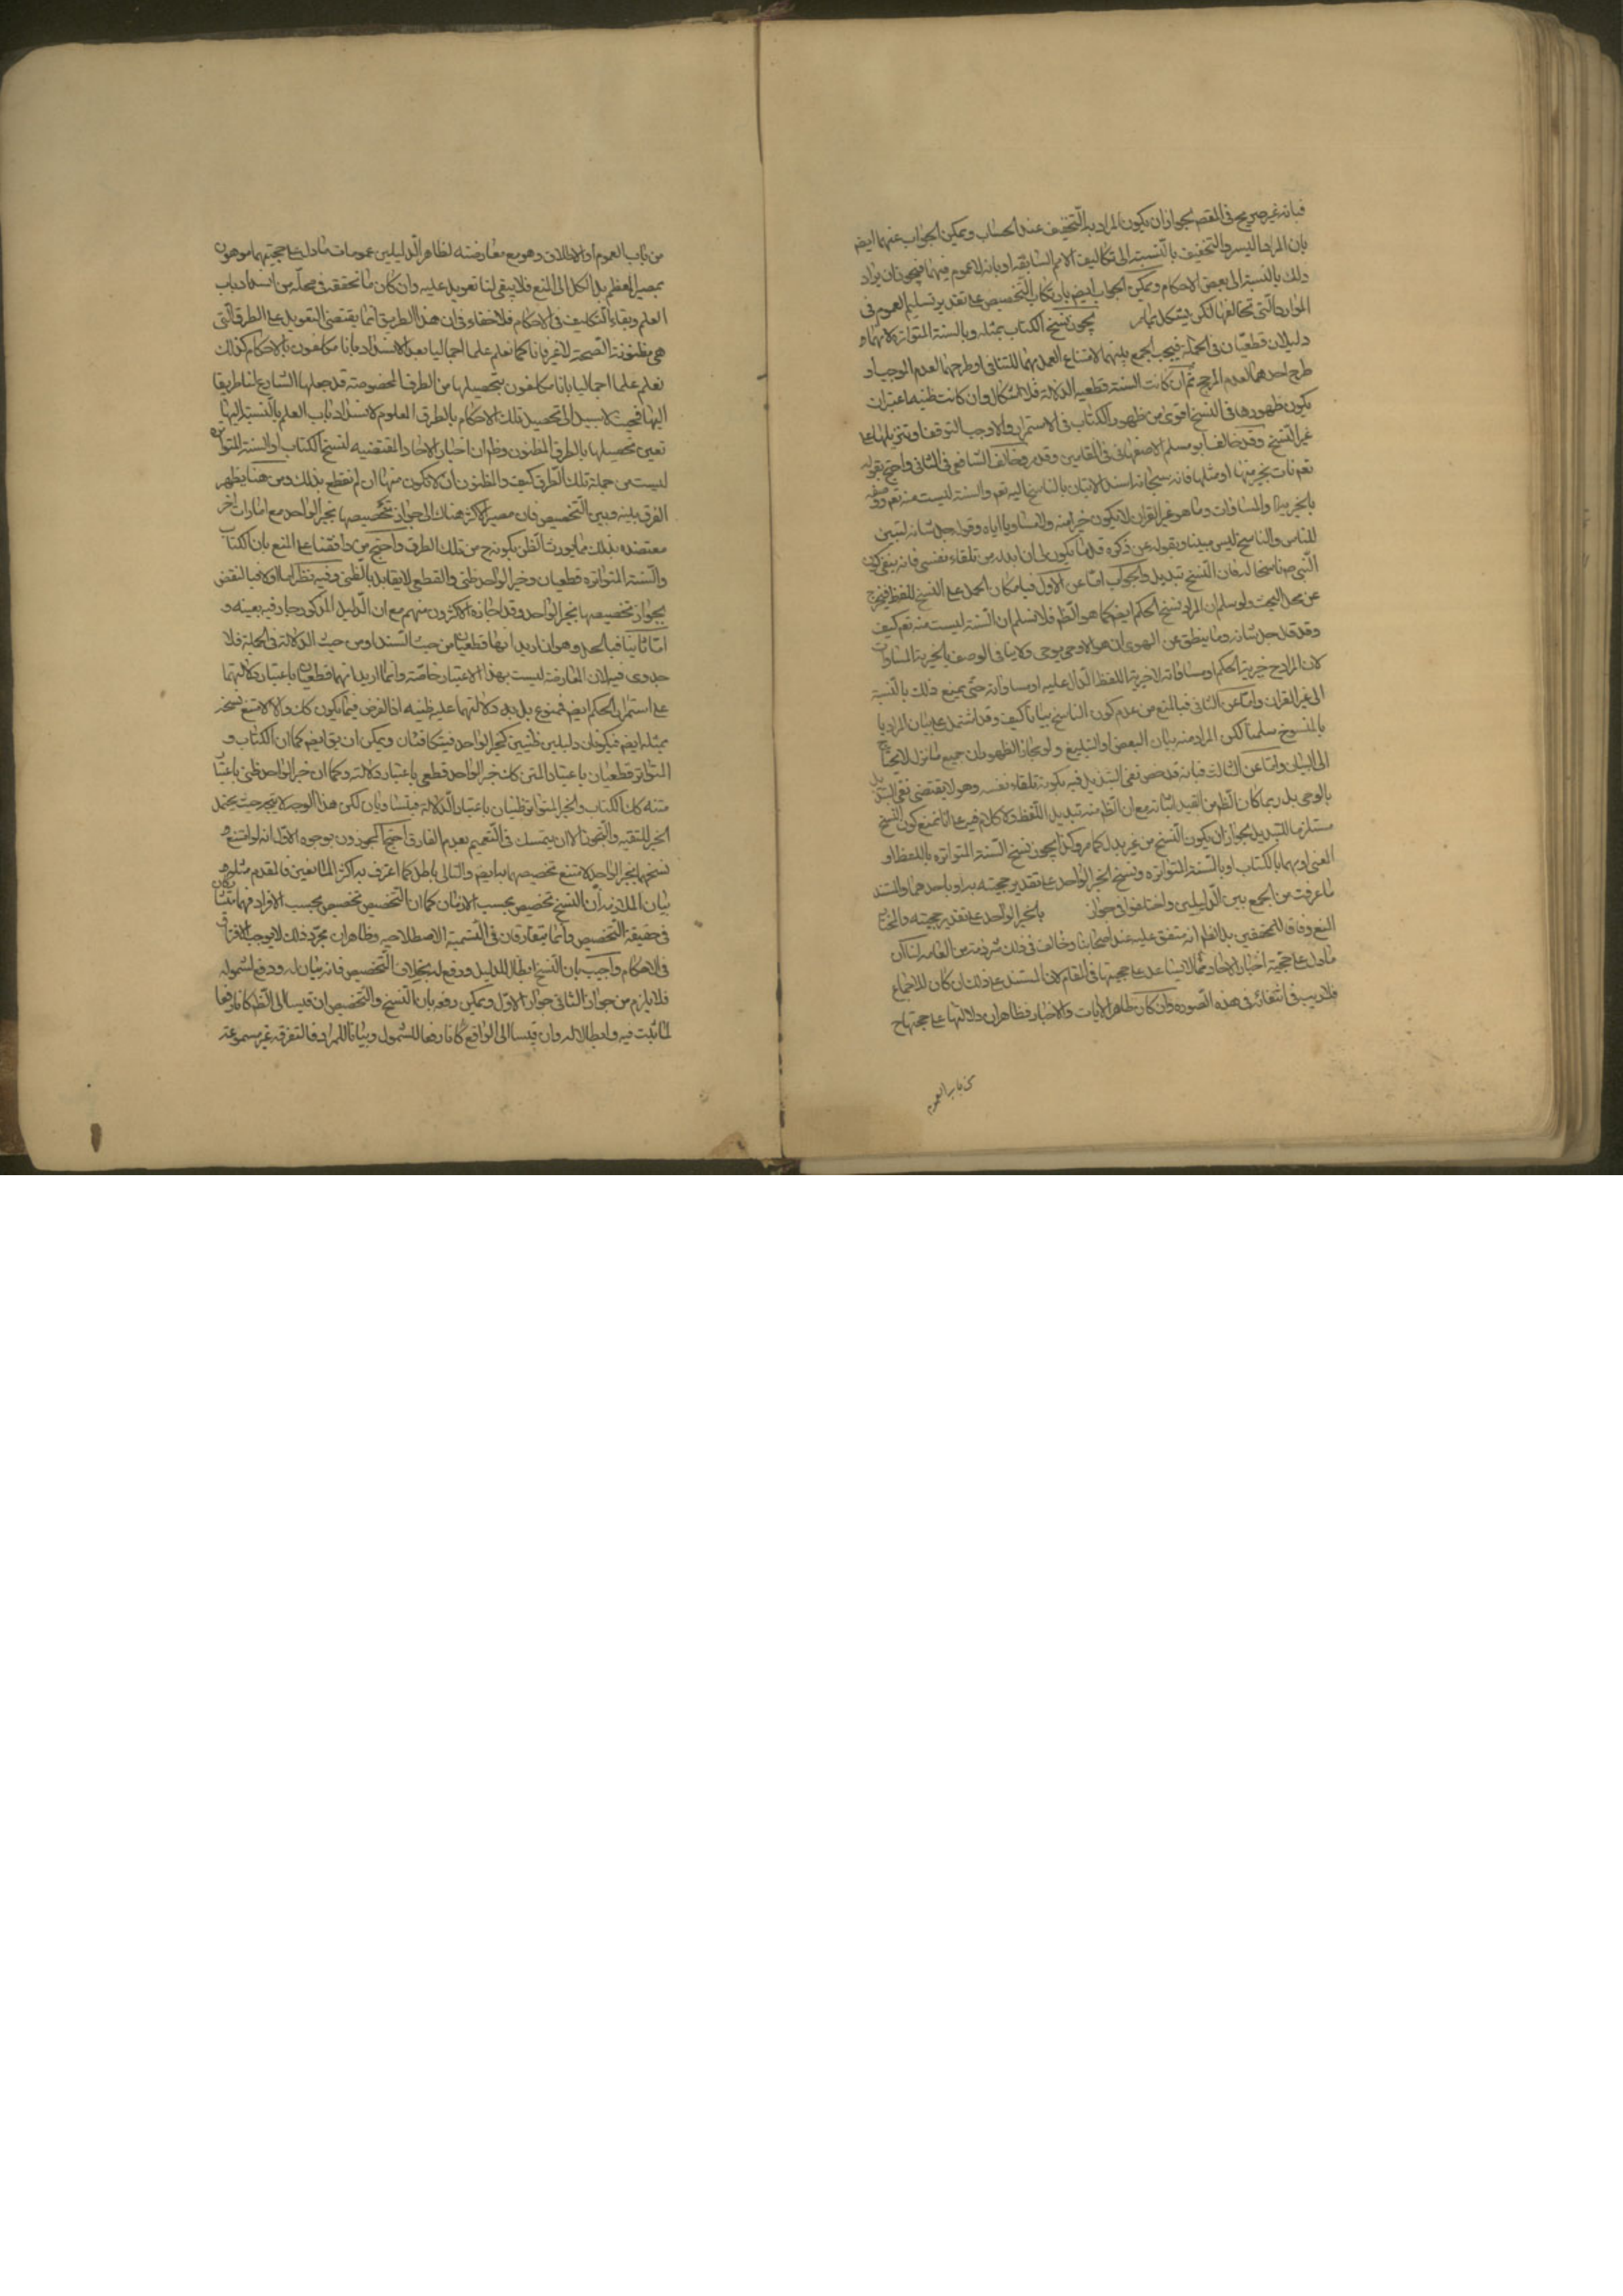 فبانه غير صريح في المقصد لجواز ان يكون المراد به التخفيف عند الحساب ويمكن الجواب عنهما ايض
بان المراد اليسر والتخفيف بالنسبة الى تكاليف الامم السابقة او بانه لا عموم فيهما فيجوز ان يراد
ذلك بالنسبة الى بعض الاحكام ويمكن الجواب ايض بارتكاب التخصيص على تقدير تسليم العموم في
الموارد التي تخالفها لكن يشكل بما مر يجوز نسخ الكتاب بمثله وبالسنة المتواترة لانهما
دليلان قطعيان في الجملة فيجب الجمع بينهما لامتناع العمل بهما للتنافي او طرحهما لعدم الموجب او
طرح احدهما لعدم المرجح ثم ان كانت السنة قطعية الدلالة فلا اشكال وان كانت ظنية اعتبر ان
يكون ظهورها في النسخ اقوى من ظهور الكتاب في الاستمرار والا وجب التوقف او تنزيلها على
غير النسخ وقد خالف ابو مسلم الاصفهاني في المقامين وقد مر وخالف الشافعي في الثاني واحتج بقوله
تعم نات بخير منها او مثلها فانه سبحانه اسند الاتيان بالناسخ اليه تعم والسنة ليست منه تعم ووصفه
بالخيرية والمساوات وما هو غير القران لا يكون خيرا منه ولا مساويا اياه وقوله جل شانه لتبين
للناس والناسخ ليس مبينا وبقوله عز ذكره قل ما يكون لي ان ابدله من تلقاء نفسي فانه ينفي كون
النبي ص ناسخا له فان النسخ تبديل والجواب اما عن الاول فبامكان الحمل على النسخ للفظ فيخرج
عن محل البحث ولو سلم ان المراد نسخ الحكم ايض كما هو الظم فلا نسلم ان السنة ليست منه تعم كيف
وقد قال جل شانه وما ينطق عن الهوى ان هو الا وحي يوحى ولا ينافي الوصف بالخيرية المساوات
لان المراد ح خيرية الحكم او مساواته لا خيرية اللفظ الدال عليه او مساواته حتى يمنع ذلك بالنسبة
الى غير القران واما عن الثاني فبالمنع من عدم كون الناسخ بيانا كيف وقد اشتمل على بيان المراد با
بالمنسوخ سلمنا لكن المراد منه بيان البعض او التبليغ ولو مجازا لظهور ان جميع ما نزل لا يحتاج
الى البيان واما عن الثالث فبانه قد خص نفي التبديل فيه بكونه تلقاء نفسه وهو لا يقتضي نفي التبديل
بالوحي بل ربما كان الظم من القيد اثباته مع ان الظم منه تبديل اللفظ ولا كلام فيه على انا نمنع كون النسخ
مستلزما للتبديل لجواز ان يكون النسخ من غير بدل كما مر وكذا يجوز نسخ السنة المتواترة باللفظ او
المعنى او بهما بالكتاب او بالسنة المتواترة ونسخ الخبر الواحد على تقدير حجيته به او باحدهما والسند
ما عرفت من الجمع بين الدليلين واختلفوا في جواز بالخبر الواحد على تقدير حجيته والمختار
المنع وفاقا للمحققين بل الظم انه متفق عليه عند اصحابنا وخالف في ذلك شرذمة من العامة لنا ان
ما دل على حجية اخبار الاحاد مما لا يساعد على حجيتها في المقام لان المستند على ذلك ان كان للاجماع
فلا ريب في انتفائه في هذه الصورة وان كان ظاهر الايات والاخبار فظاهر ان دلالتها على حجيتها ح
من باب العموم
من باب العموم او الاطلاق وهو مع معارضته لظاهر الدليلين عمومات ما دل على حجيتهما موهون
بمصير المعظم بل الكل الى المنع فلا يبقى لنا تعويل عليه وان كان ما تحققه في محله من انسداد باب
العلم وبقاء التكليف في الاحكام فلا خفاء في ان هذا الطريق انما يقتضي التعويل على الطرق التي
هي مظنونة الصحة لا غير فانا كما نعلم علما اجماليا بعد الانسداد بانا مكلفون بالاحكام كذلك
نعلم علما اجماليا بانا مكلفون بتحصيلها من الطرق المخصوصة قد جعلها الشارع لنا طريقا
اليها فحيث لا سبيل الى تحصيل تلك الاحكام بالطرق المعلوم لانسداد باب العلم بالنسبة اليها
تعين تحصيلها بالطرق المظنون وظم ان اخبار الاحاد المقتضية لنسخ الكتاب او السنة المتواترة
ليست من جملة تلك الطرق كيف والمظنون ان لا تكون منها ان لم نقطع بذلك ومن هنا يظهر
الفرق بينه وبين التخصيص فان مصير الاكثر هناك الى جواز تخصيصها بخبر الواحد مع امارات اخر
معتضدة بذلك مما يورث الظن بكونه ح من تلك الطرق واحتج من وافقنا على المنع بان الكتاب
والسنة المتواترة قطعيان وخبر الواحد ظني والقطعي لا يقابل بالظني وفيه نظر اما اولا فبالنقض
بجواز تخصيصها بخبر الواحد وقد اجازه الاكثرون منهم مع ان الدليل المذكور جار فيه بعينه و
اما ثانيا فبالحل وهو انه ان اريد انهما قطعيان من حيث السند او من حيث الدلالة في الجملة فلا
جدوى فيه لان المعارضة ليست بهذا الاعتبار خاصة وانما اريد انهما قطعيان باعتبار دلالتهما
على استمرار الحكم ايض فممنوع بل بل دلالتهما عليه ظنية اذ الفرض فيما يكون كك والا لامتنع نسخه
بمثله ايض فيكونان دليلين ظنيين كخبر الواحد فيتكافئان ويمكن ان يق ايض كما ان الكتاب و
المتواتر قطعيان باعتبار المتن كك خبر الواحد قطعي باعتبار دلالته وكما ان خبر الواحد ظني باعتبار
متنه كك الكتاب والخبر المتواتر ظنيان باعتبار الدلالة فيتساويان لكن هذا الوجه لا يتجه حيث يحتمل
الخبر للتقية والتجوز الا ان يتمسك في التعميم بعدم الفارق احتج المجوزون بوجوه الاول انه لو امتنع
نسخهما بخبر الواحد لامتنع تخصيصهما به ايض والتالي باطل كما اعترف به اكثر المانعين فالمقدم مثله
بيان الملازمة ان النسخ تخصيص بحسب الازمان كما ان التخصيص تخصيص بحسب الافراد فهما متشاركان
في حقيقة التخصيص وانما يتفارقان في التسمية الاصطلاحية وظاهر ان مجرد ذلك لا يوجب الافتراق
في الاحكام واجيب بان النسخ ابطال للدليل ورفع له بخلاف التخصيص فانه بيان له ودفع لشموله
فلا يلزم من جواز الثاني جواز الاول ويمكن دفعه بان النسخ والتخصيص ان قيسا الى الظم كانا رفعا
لما ثبت فيه وابطالا له وان قيسا الى الواقع كانا رفعا للشمول وبيانا للمراد فالتفرقة غير مسموعة